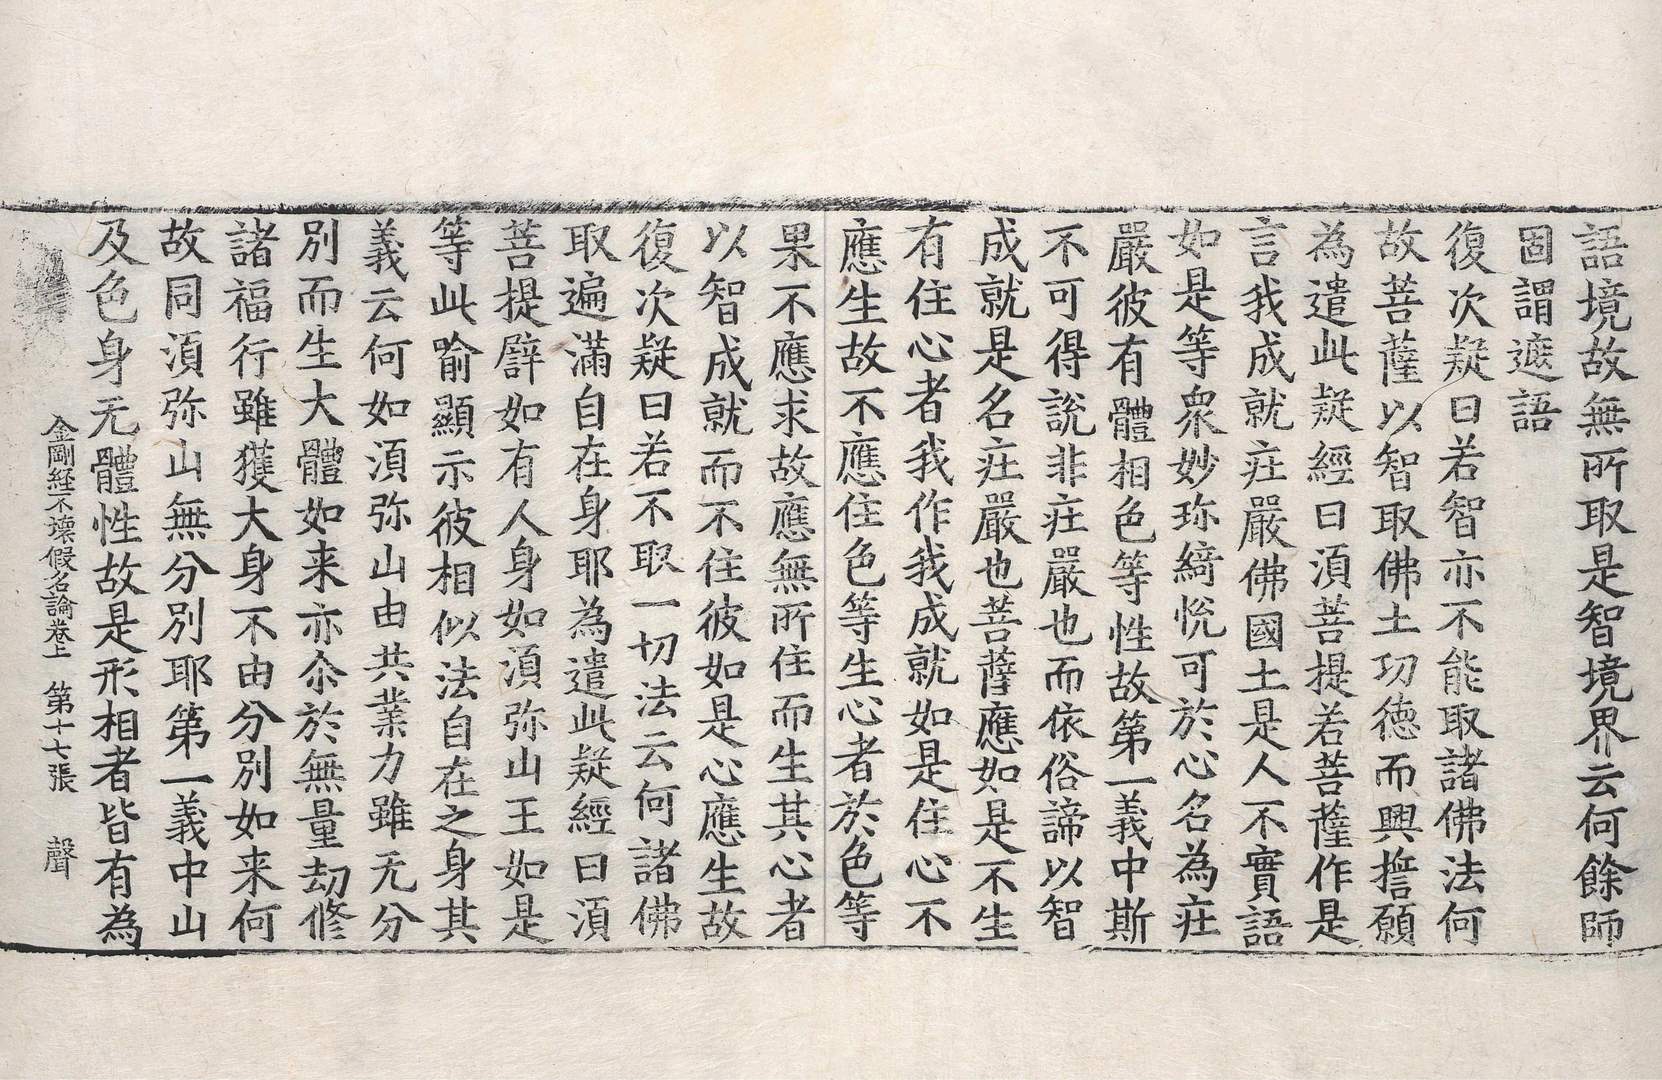 語境故無所取是智境界云何餘師
固謂遮語
復次疑曰若智亦不能取諸佛法何
故菩薩以智取佛土功德而興誓願
為遣此疑經曰湏菩提若菩薩作是
言我成就庄嚴佛國土是人不實語
如是等衆妙珎綺悅可於心名為庄
嚴彼有體相色等性故第一義中斯
不可得說非庄嚴也而依俗諦以智
成就是名庄嚴也菩薩應如是不生
有住心者我作我成就如是住心不
應生故不應住色等生心者於色等
果不應求故應無所住而生其心者
以智成就而不住彼如是心應生故
復次疑曰若不取一切法云何諸佛
取遍滿自在身耶為遣此疑經曰湏
菩提譬如有人身如湏弥山王如是
等此喻顯示彼相似法自在之身其
義云何如湏弥山由共業力雖无分
別而生大體如来亦尒於無量劫修
諸福行雖獲大身不由分別如来何
故同湏弥山無分別耶第一義中山
及色身无體性故是形相者皆有為
金剛經不壞假名論卷上 第十七張 聲